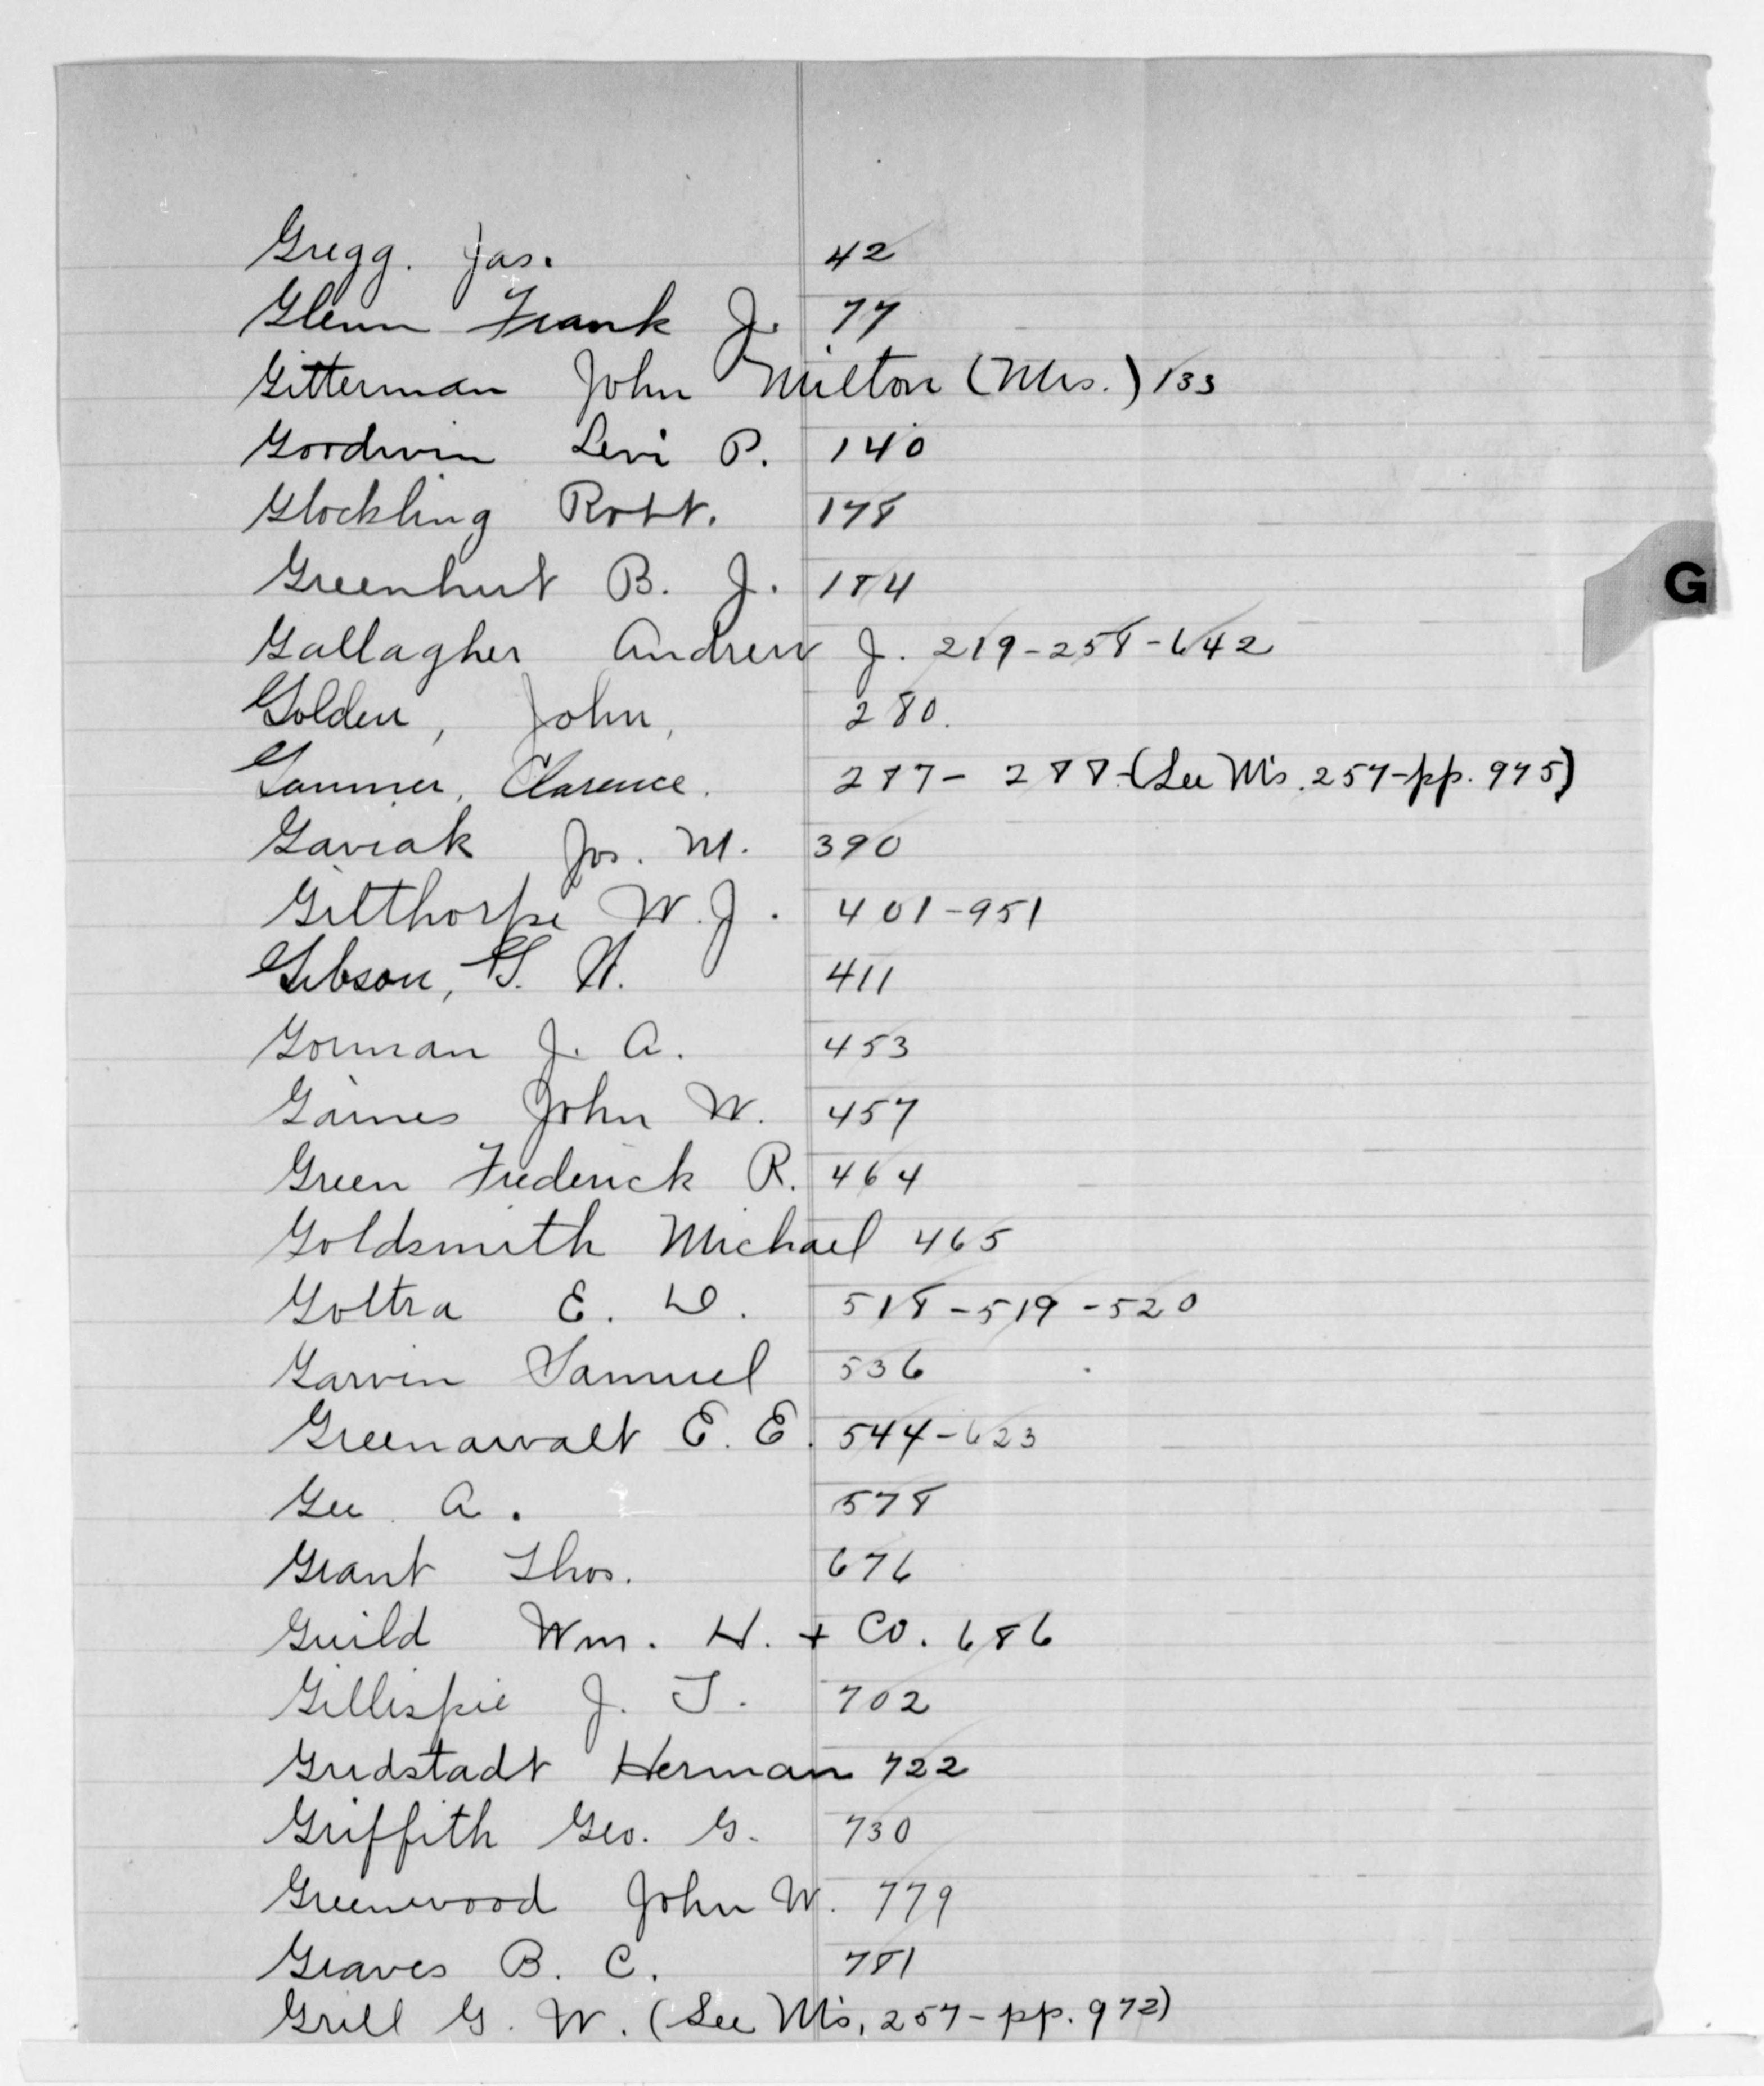 Gregg. Jas. 42
Glenn Frank J. 77
Gitterman John Milton (Mrs.) 133
Goodwin Levi P. 140
Glockling Robt. 178
Greenhut B. J. 184
G
Gallagher Andrew J. 219-258-642
Golden, John, 280.
Garmer, Clarence. 287- 288-(See M's. 257-pp. 975)
Gaviak Jos. M. 390
Gilthorpe W. J. 401-951
Gibson, G. H. 411
Gorman J. A. 453
Gaines John W. 457
Green Frederick R. 464
Goldsmith Michael 465
Goltra E. D. 518-519-520
Garvin Samuel 536
Greenawalt E. E. 544-623
Gee A. 578
Grant Thos. 676
Guild Wm. H. + Co. 686
Gillispie J. T. 702
Gridstadt Herman 722
Griffith Geo. G. 730
Greenwood John W. 779
Graves B. C. 781
Grill G. W. (See M's, 257-pp. 972)